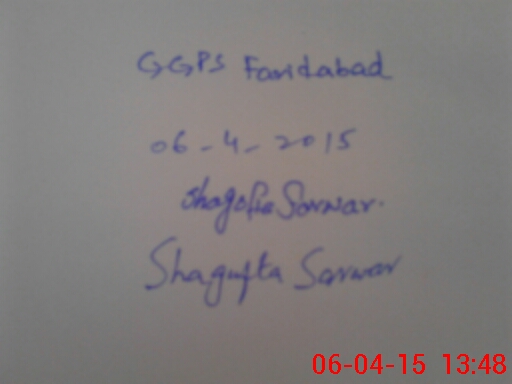 GGPS Faridabad
06-4-2015
Shagufta Sarwar.
Shagufta Sarwar
06-04-15 13:48